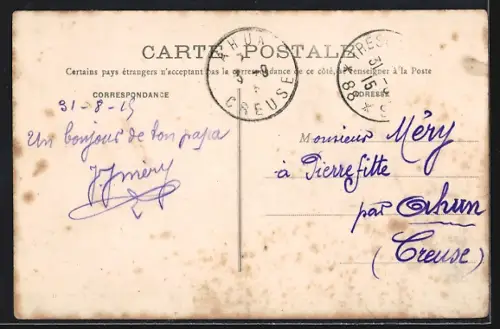 CARTE POSTALE
Certains pays étrangers n'acceptent pas la correspondance de ce côté, se renseigner à la Poste
CORRESPONDANCE
ADRESSE
AHUN
3-9
CREUSE
TRÉSOR
31
15
* 88 *
31-8-15
Un bonjour de ton papa
Méry
Monsieur Méry
à Pierrefitte
par Ahun
(Creuse)